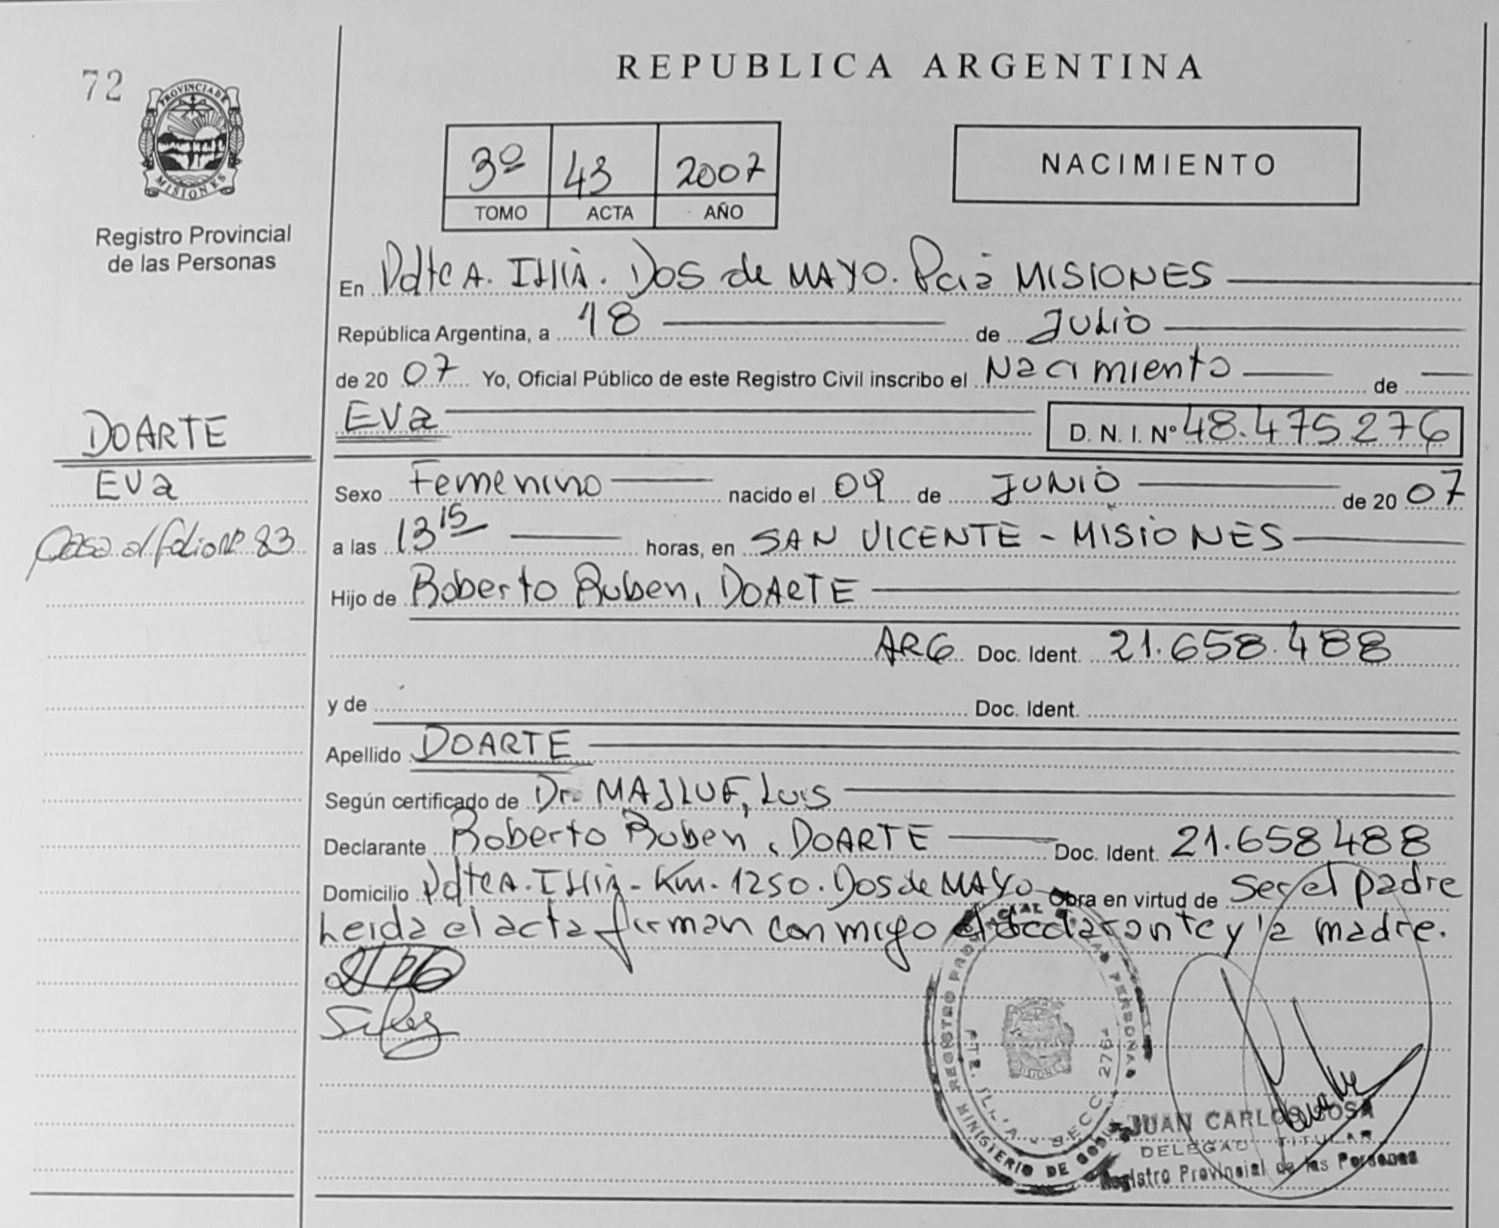 72
PROVINCIA DE
MISIONES
Registro Provincial
de las Personas
REPUBLICA ARGENTINA
3º 43 2007
TOMO ACTA AÑO
NACIMIENTO
En Pdte A. Illia. Dos de MAYO. MISIONES
República Argentina, a 18 de JuLio
de 20 07 Yo, Oficial Público de este Registro Civil inscribo el Nacimiento de
EVa D. N. I. Nº 48.475.276
Sexo Femenino nacido el 09 de JUNIO de 20 07
a las 13 15 horas, en SAN VICENTE - MISIONES
Hijo de Roberto Ruben, DOARTE
ARG Doc. Ident. 21.658.488
y de Doc. Ident.
Apellido DOARTE
Según certificado de Dr. MAJLUF, Luis
Declarante Roberto Ruben, DOARTE Doc. Ident. 21.658488
Domicilio Pdte A. Illia - Km. 1250. Dos de MAYO Obra en virtud de Ser el padre
Leida el acta firman conmigo el declarante y la madre.
DOARTE
EVa
Pasa al folio Nº 83
REGISTRO PROVINCIAL DE LAS PERSONAS
MINISTERIO DE GOB
PTE. ILLIA SECC. 276
JUAN CARLOS SOSA
DELEGADO TITULAR
Registro Provincial de las Personas